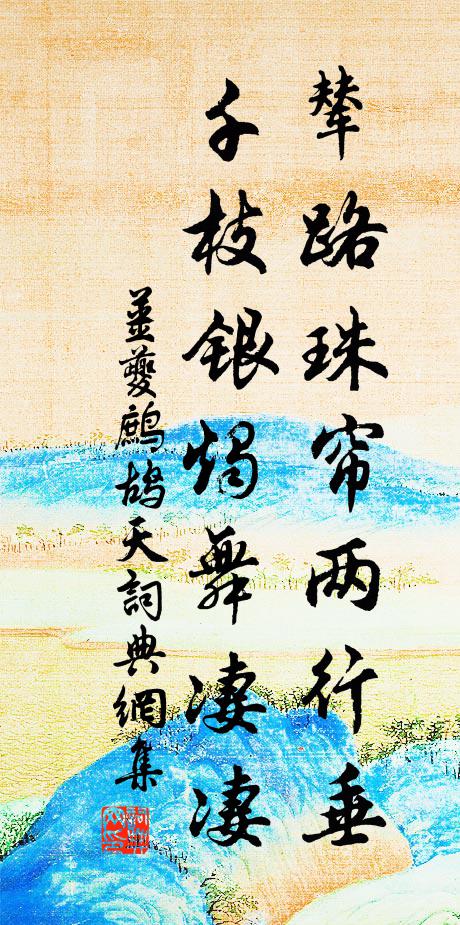 辇路珠帘两行垂
千枝银烛舞凄凄
姜夔鹧鸪天詞典網集